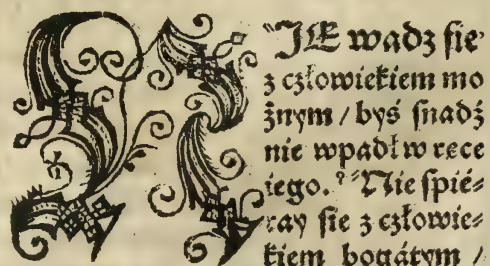 NIE wadz ſie
z człowiekiem mo
żnym / byś ſnadź
nie wpadł w ręce
iego. Nie ſpié⸗
ray ſie z człowie⸗
kiem bogátym /